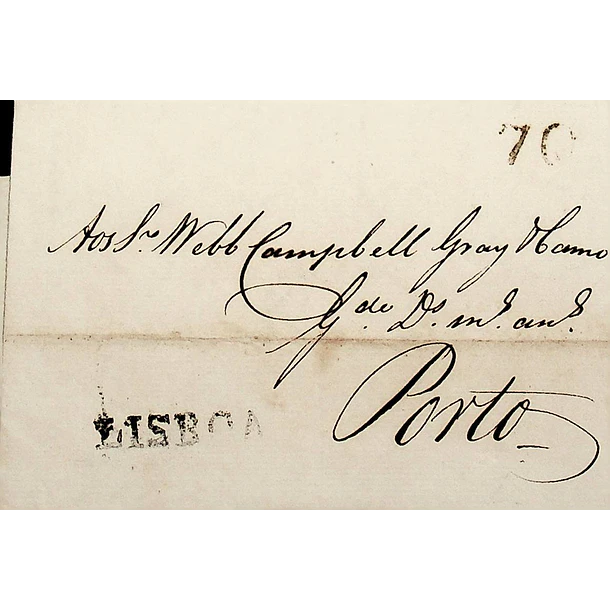 70
Aos Srs Webb Campbell Gray & Camo
Gde. Ds. ms. ans.
Porto
LISBOA